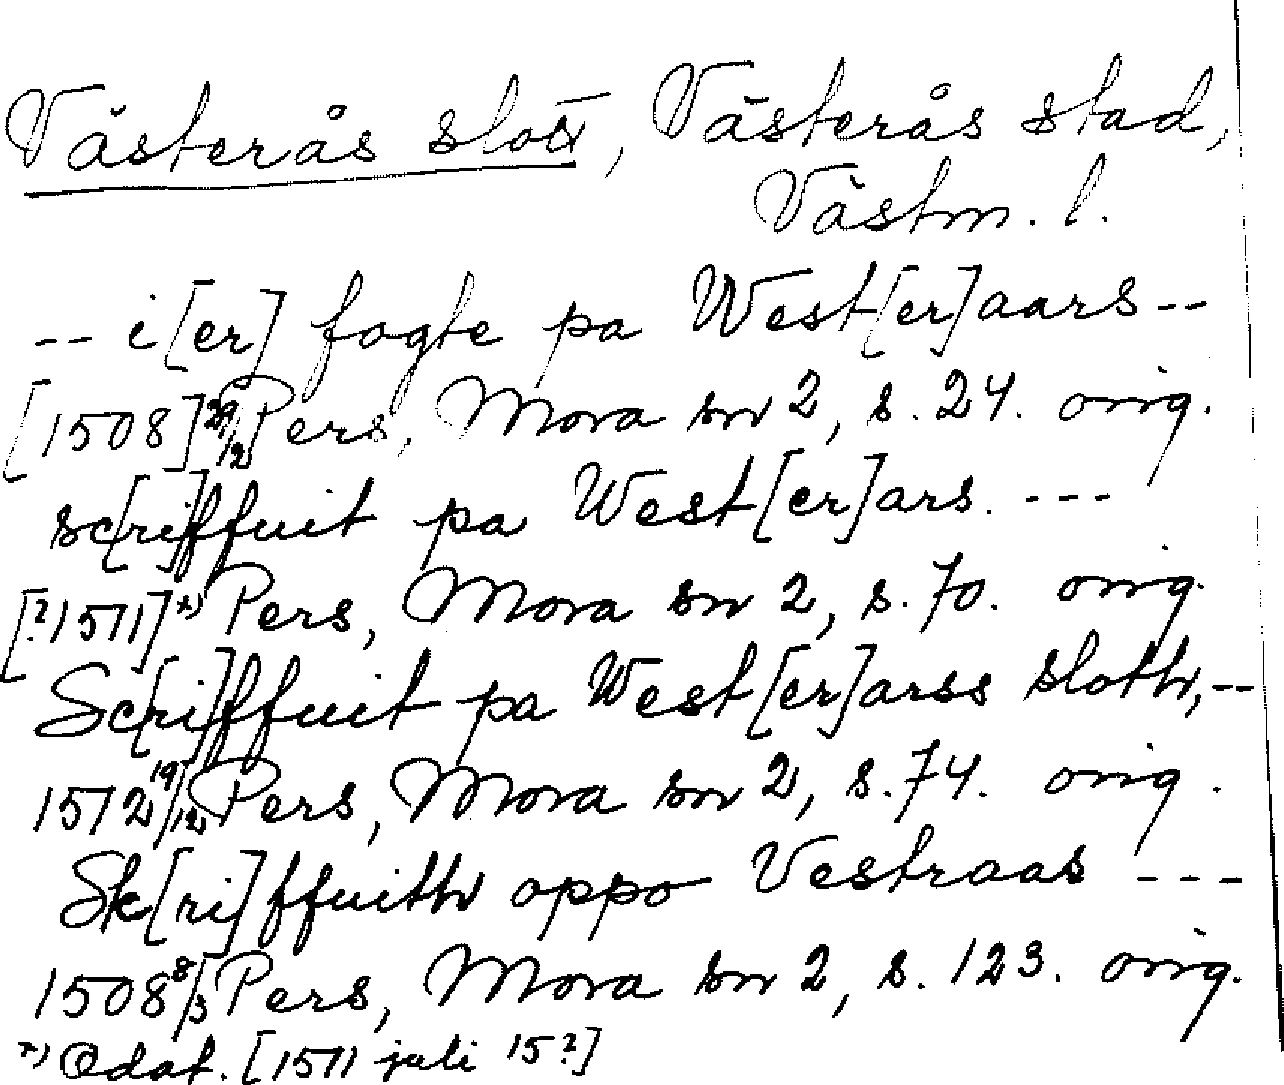 Västerås slott, Västerås stad,
Västm. l.
-- i[er] fogte pa West[er]aars --
[1508] 29/2 Pers, Mora sn 2, s. 24. orig.
sc[ri]ffuit pa West[er]ars. ---
[?1511] *) Pers, Mora sn 2, s. 70. orig.
Sc[ri]ffuit pa West[er]arss sloth, --
1512 19/12 Pers, Mora sn 2, s. 74. orig.
Sk[ri]ffuith oppo Vestraas ---
1508 8/3 Pers, Mora sn 2, s. 123. orig.
*) Odat. [1511 juli 15?]